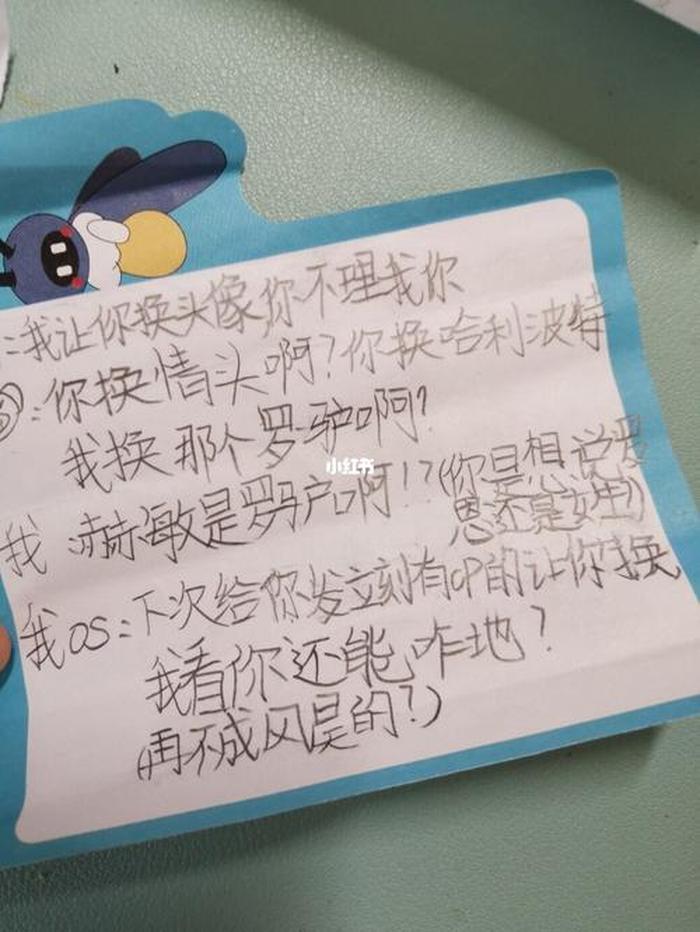 ：我让你换头像你不理我你
：你换情头啊？你换哈利波特
我换那个罗驴啊？
小红书
我：赫敏是罗马户啊！？（你是想说罗
恩还是女生）
我OS：下次给你发立刻有CP的让你换，
我看你还能咋地？
（再不成风昊的？）